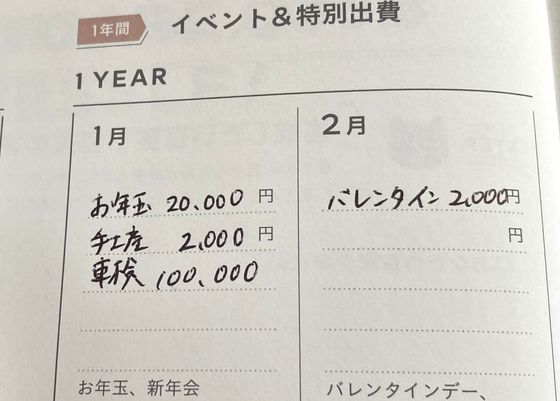 1年間 イベント&特別出費
1 YEAR
1月
お年玉 20.000 円
手土産 2,000 円
車検 100、000
お年玉、新年会
2月
バレンタイン 2,000円
円
バレンタインデー、